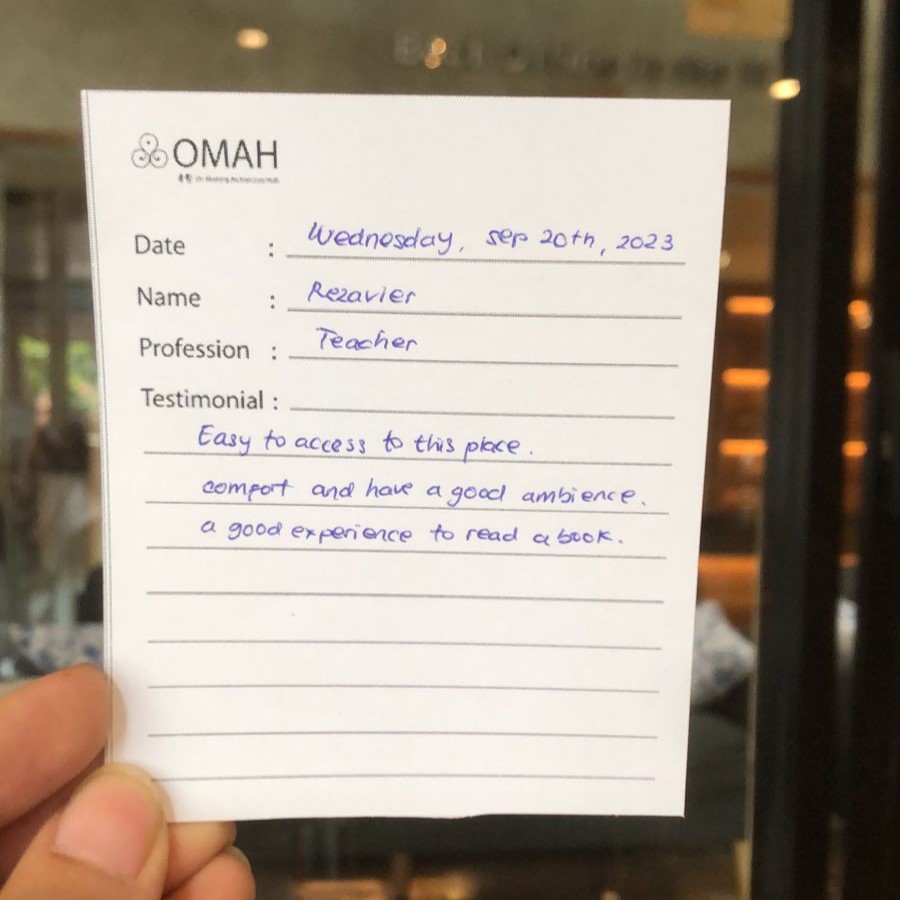 OMAH
Date : Wednesday, sep 20th, 2023
Name : Rezavier
Profession : Teacher
Testimonial :
Easy to access to this place.
comfort and have a good ambience.
a good experience to read a book.